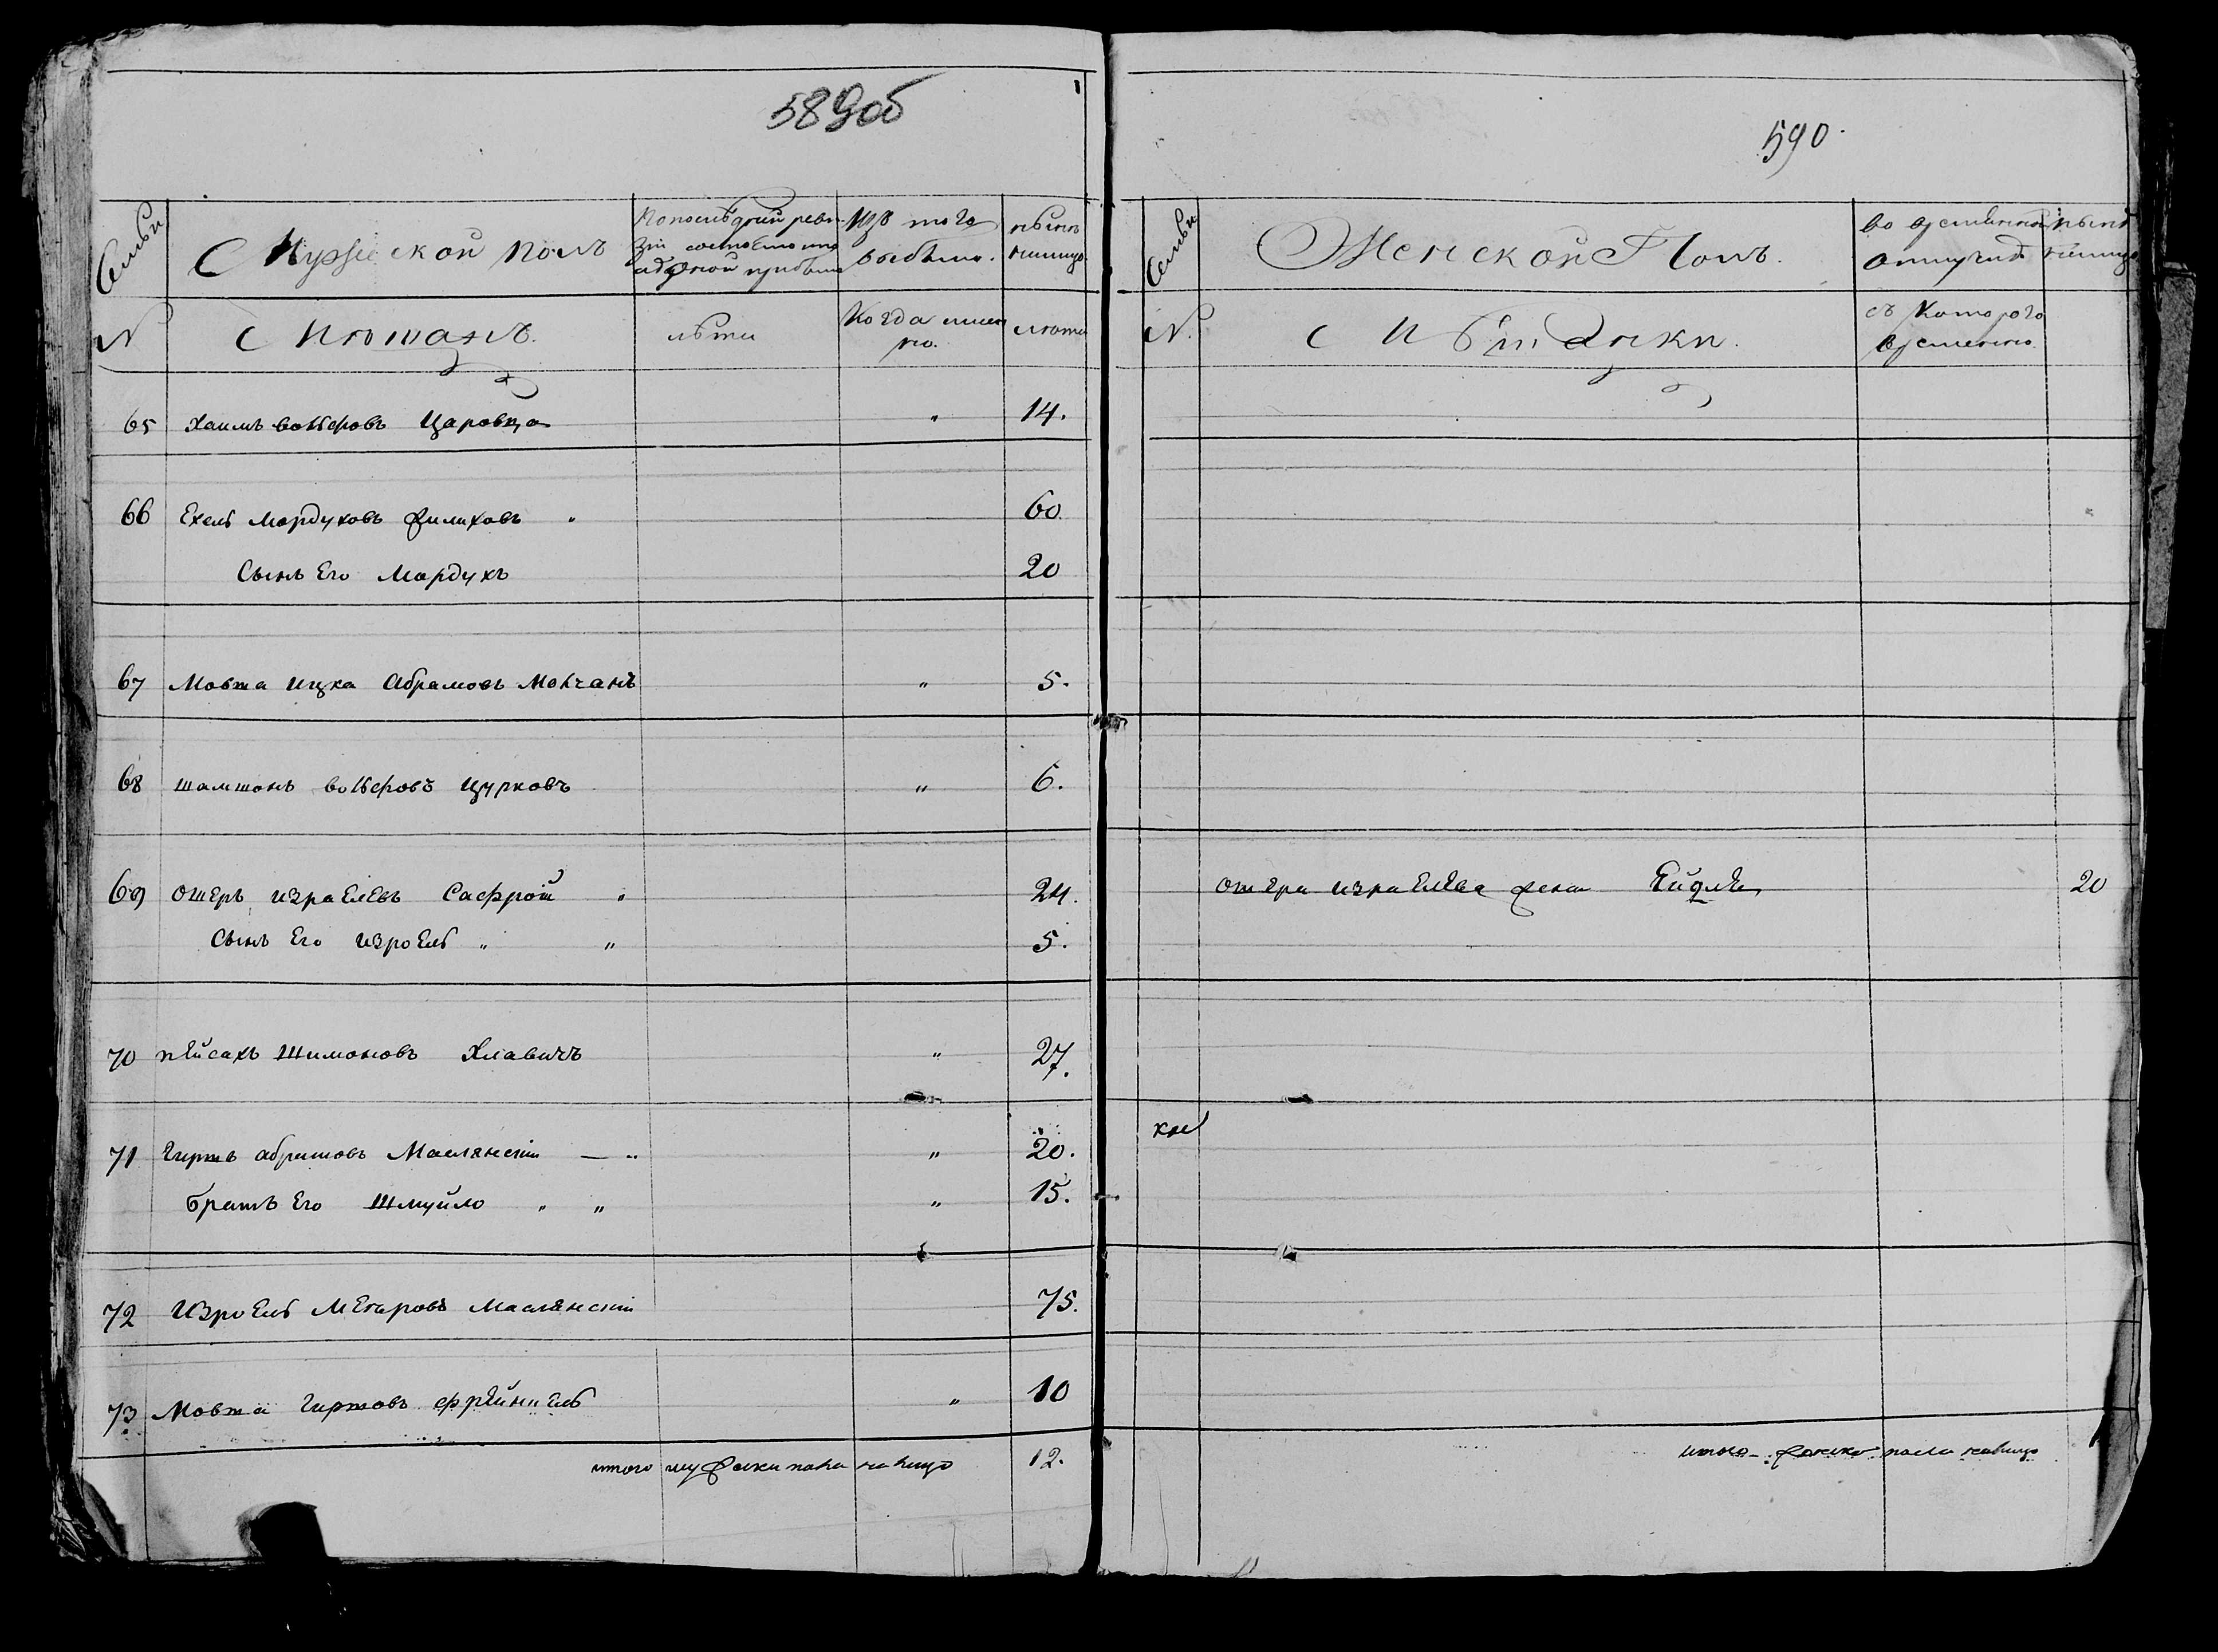 589об
Семьи
Мужеской полъ
По последней ревизіи состояло или
Изъ того выбыло.
нынѣ на лицо.
№
Мѣщанѣ.
лѣта
Когда именно.
лѣта
65 Хаимъ волѣфовъ Царовка " 14.
66 Ехель Мордуховъ Филиховъ " 60
Сынъ Его Мордухъ 20
67 Мовша ицка Абрамовъ Молчанъ " 5.
68 шамшонъ волѣфовъ Цурковъ " 6.
69 ошеръ израелевъ Сафрой " 24.
Сынъ Его изроель " " 5.
70 пейсахъ Шимоновъ Хлавичъ " 27.
71 Гирша абрамовъ Маслянскій — " " 20.
братъ Его Шмуйло " " " 15.
72 Изроель Мееровъ Маслянскій 75.
73 Мовша Гиршовъ Фрейнкель " 10
итого мужеска пола на лицо 12.
590.
Семьи
Женской Полъ.
во временной отлучкѣ
нынѣ на лицо
№.
Мѣщанки.
съ Которого времени
ошера израелева жена Ейдля 20
итого женска пола налицо